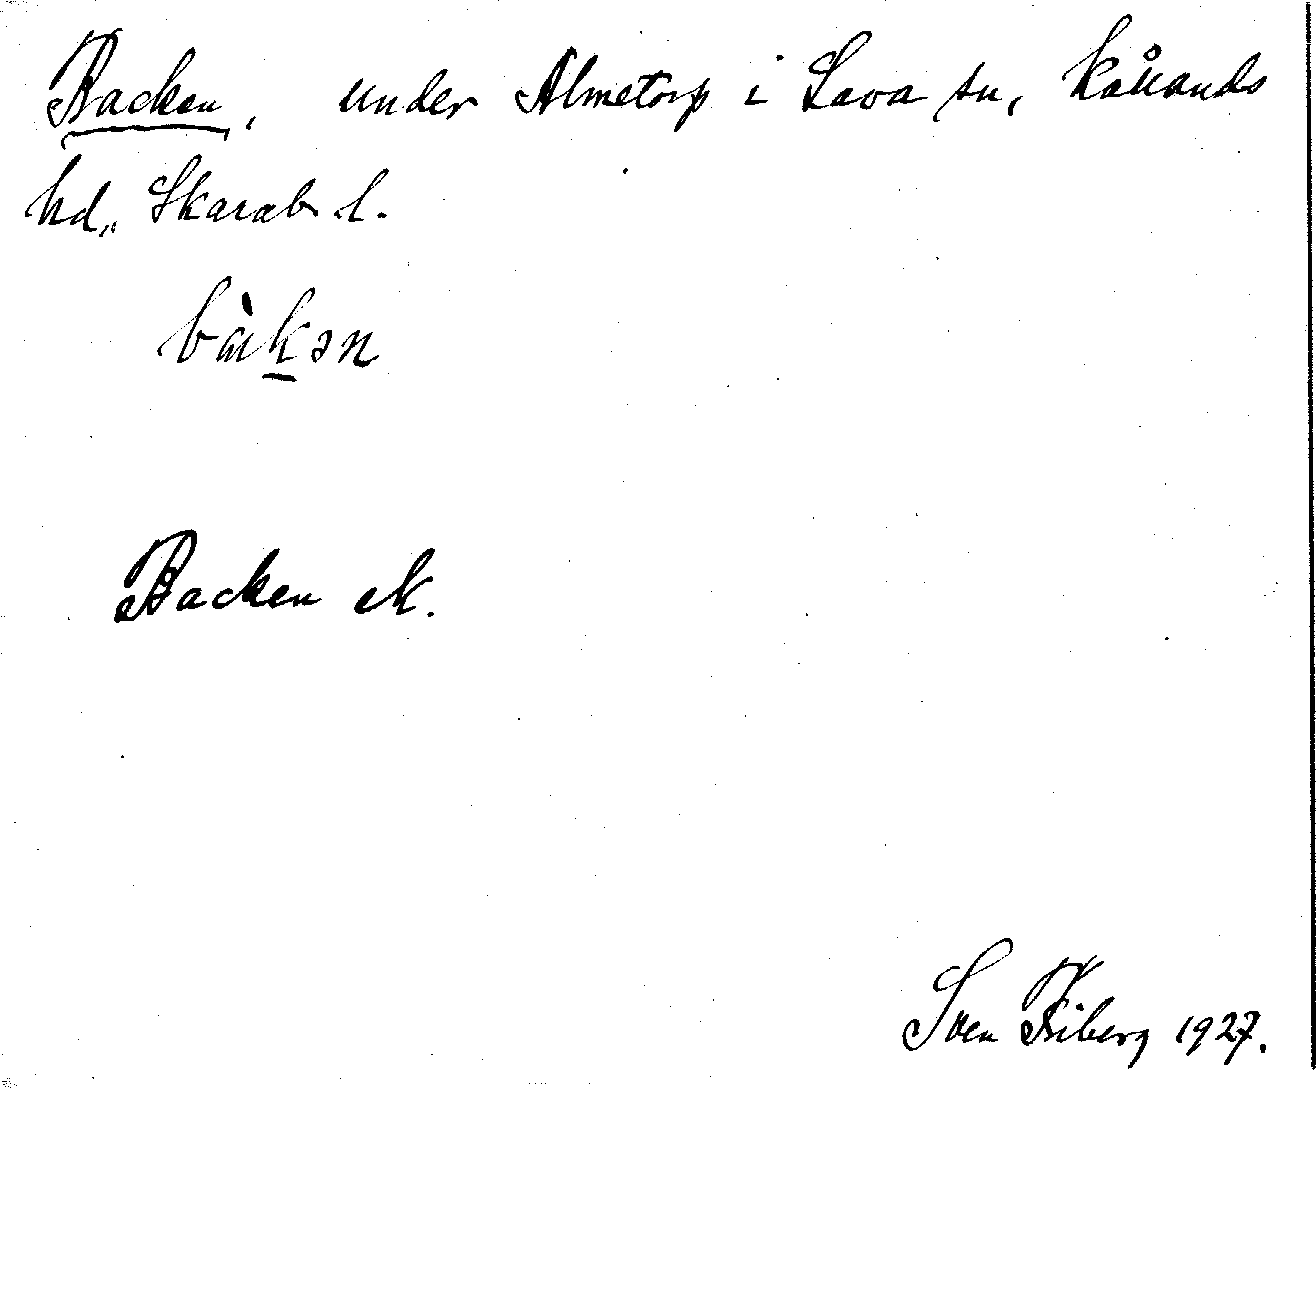 Backen, under Almetorp i Lava sn, Kållands
hd., Skarab. l.
bàkən
Backen ek.
Sven Kiberg 1927.